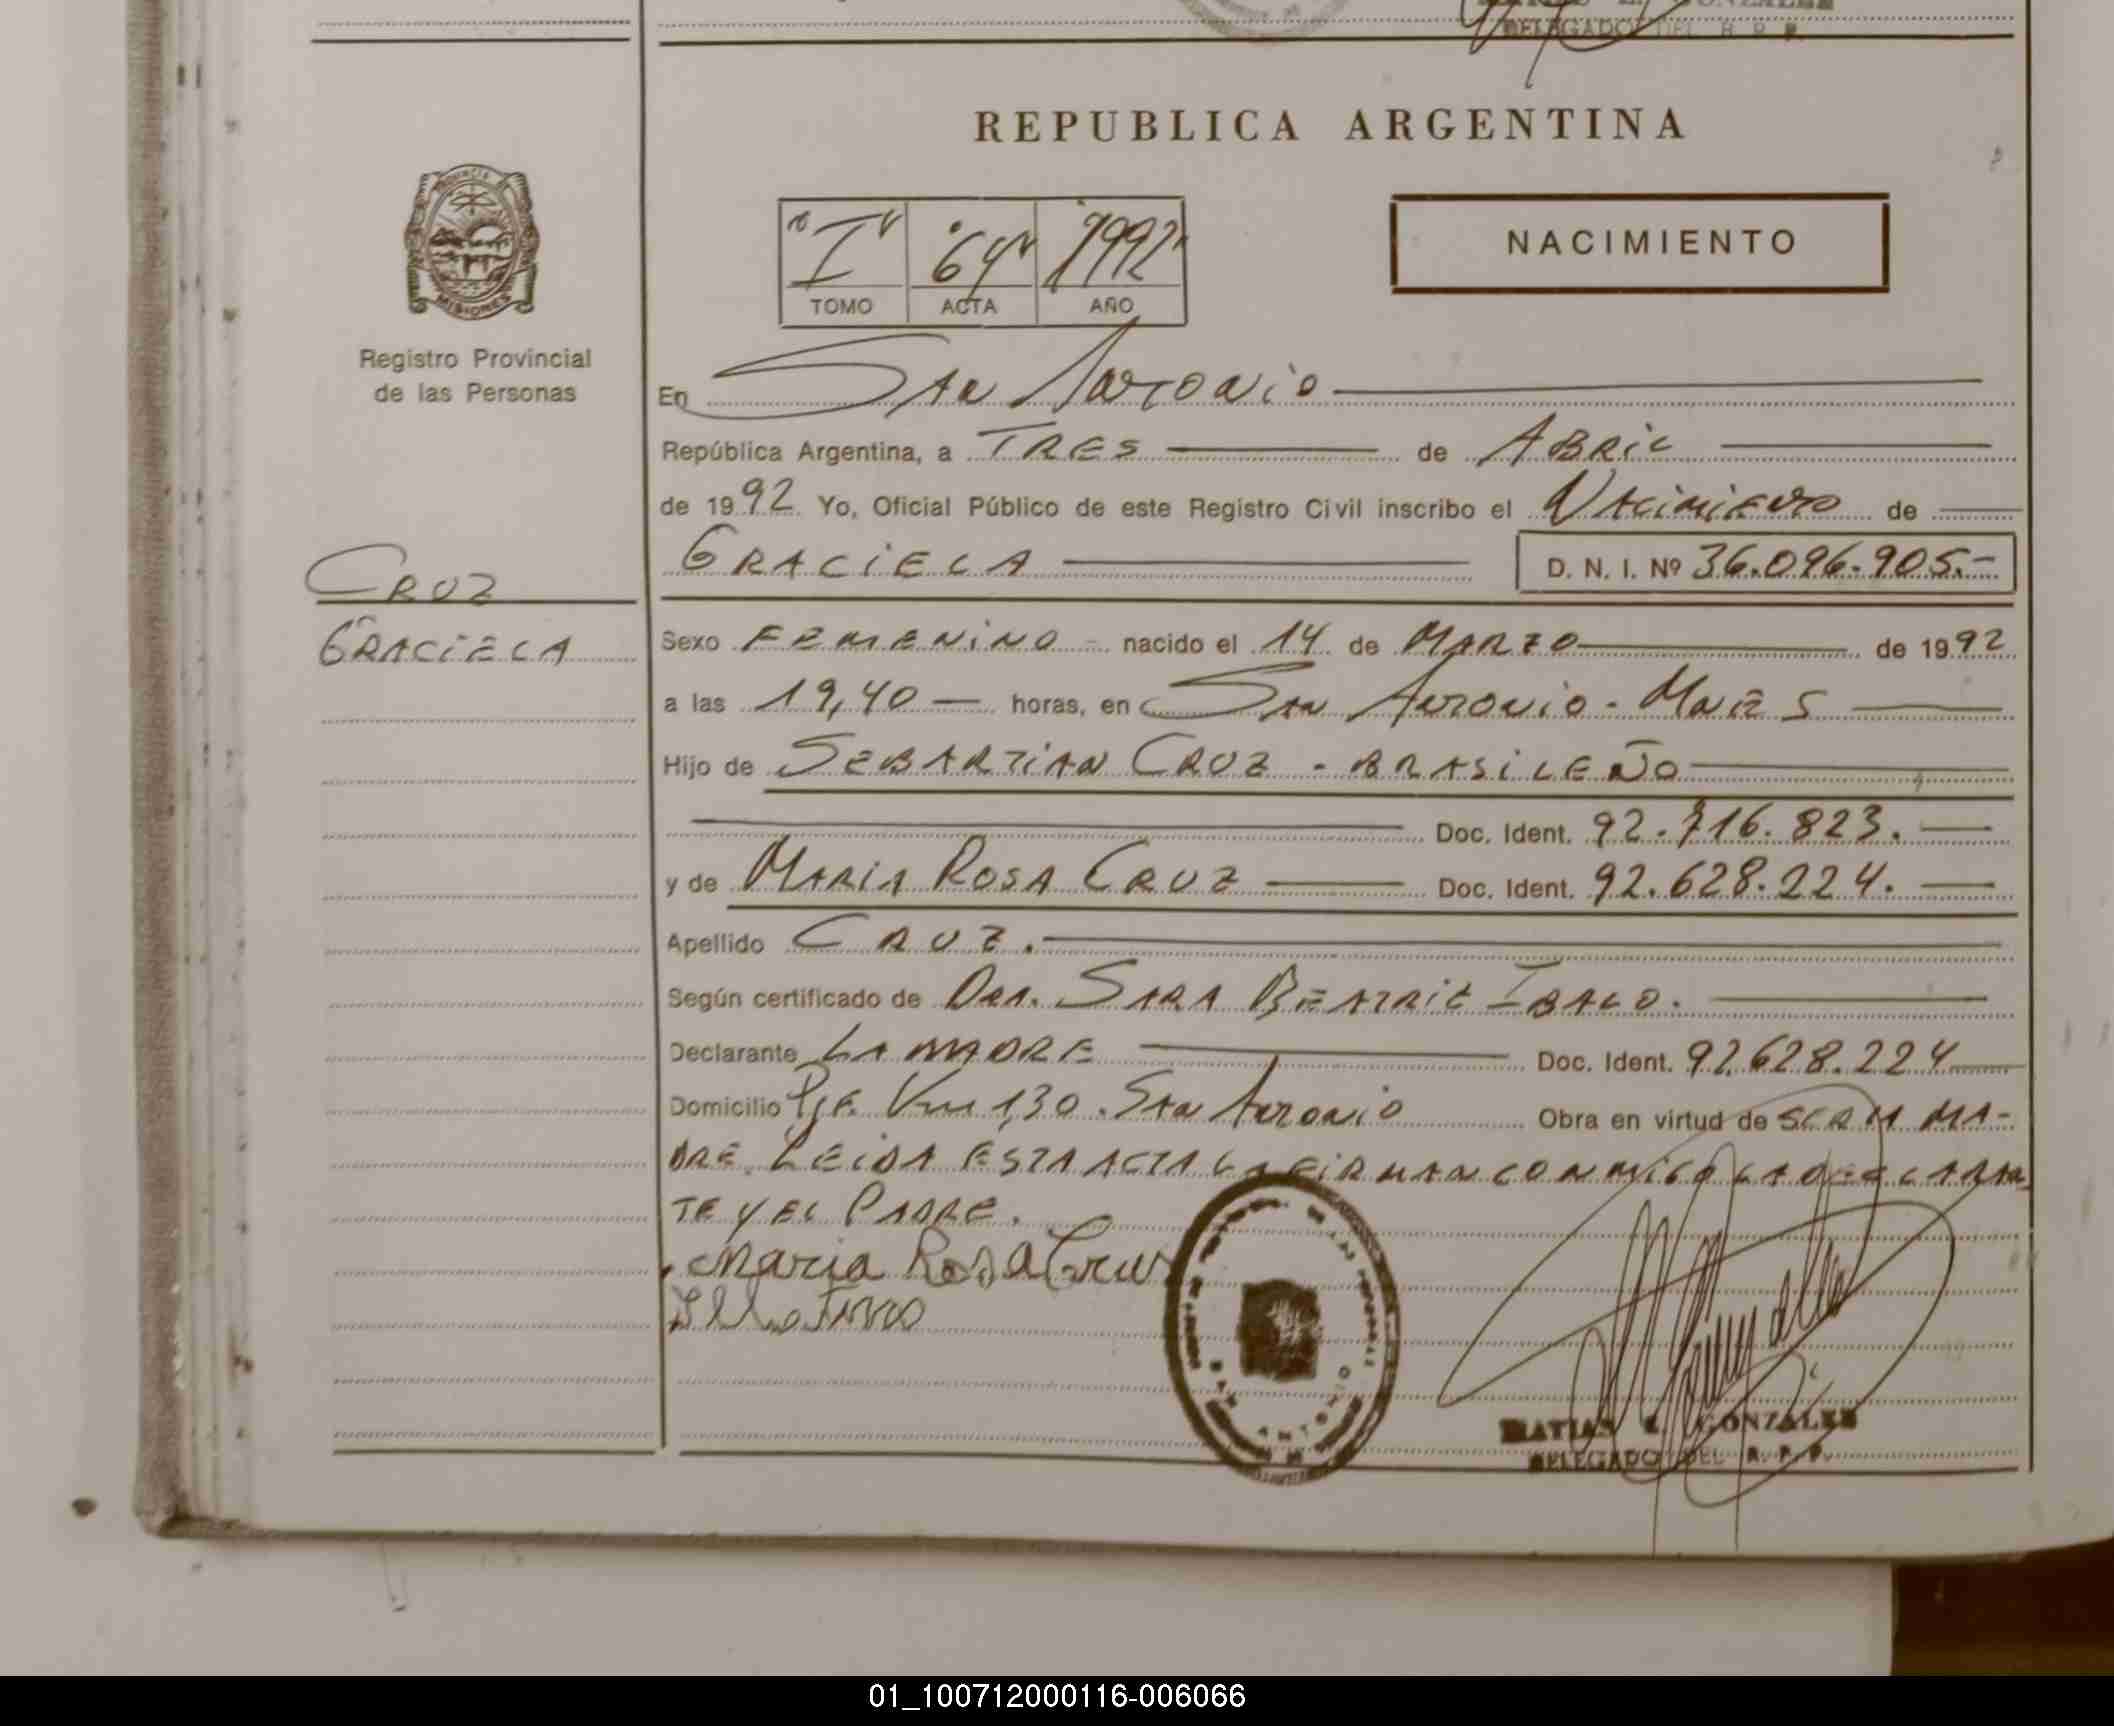 GONZALEZ
DELEGADO DEL R. P. P.
REPUBLICA ARGENTINA
PROVINCIA DE
MISIONES
"I" "64" "1992"
TOMO ACTA AÑO
NACIMIENTO
Registro Provincial
de las Personas
En San Antonio
República Argentina, a TRES de ABRIL
de 1992 Yo, Oficial Público de este Registro Civil inscribo el Nacimiento de
GRACIELA D. N. I. Nº 36.096.905.-
CRUZ
GRACIELA
Sexo FEMENINO - nacido el 14 de MARZO de 1992
a las 19,40 — horas, en San Antonio - Mnes
Hijo de SEBASTIAN CRUZ - BRASILEÑO
Doc. Ident. 92.716.823.
y de MARIA ROSA CRUZ Doc. Ident. 92.628.224.
Apellido CRUZ.
Según certificado de Dra. SARA BEATRIZ IBALO.
Declarante LA MADRE Doc. Ident. 92.628.224
Domicilio Pje. Km 130. San Antonio Obra en virtud de SER LA MA-
DRE. LEIDA ESTA ACTA LA FIRMAN CONMIGO LA DECLARAN-
TE Y EL PADRE.
Maria Rosa Cruz
SAN ANTONIO
MATIAS E. GONZALEZ
DELEGADO DEL R. P. P.
01_100712000116-006066